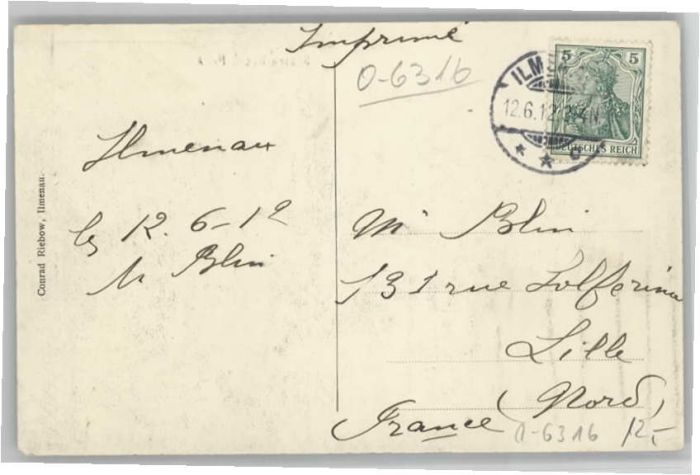 Imprimé
0-6316
5 5
ILM
12.6.12
DEUTSCHES REICH
* * c
Ilmenau
le 12. 6-12
M Blin
Conrad Riebow, Ilmenau.
Mr Blin
131 rue Solferino
Lille
(Nord)
France
0-6316 12,-